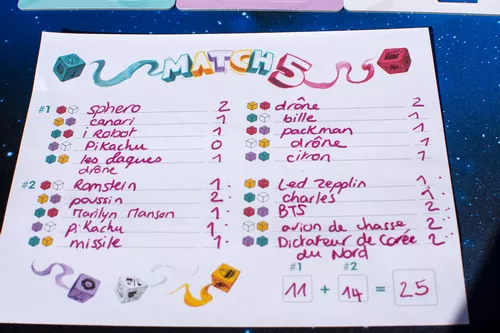 MATCH 5
#1 sphero 2
canari 1
i Robot 1
Pikachu 0
les claques 1
drône
drône 2
bille 1
packman 1
drône 1
citron 1
#2 Ramstein 1
poussin 2
Marilyn Manson 1
pikachu 1
missile 1
Led zepplin 1
charles 1
BTS 2
avion de chasse 2
Dictateur de Corée 2
du Nord
#1 #2
11 + 14 = 25